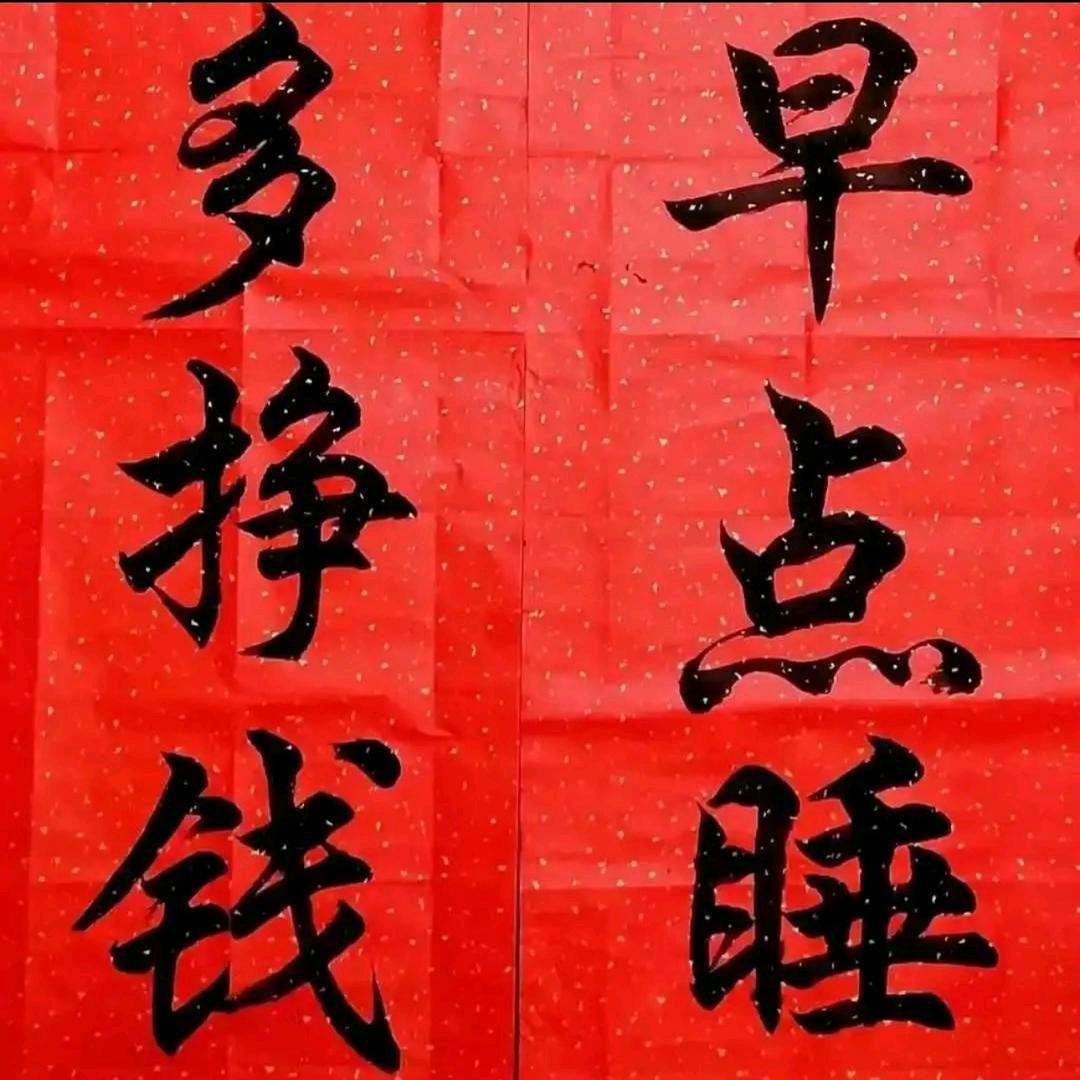 早点睡
多挣钱